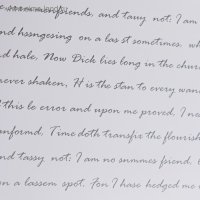 friends, and tauy not; I am
nd hssngesing on a las st sometimes. wh
d hale, Now Dick lies long in the chur
ever shaken, It is the stan to every wan
this le error and upon me proved, I ne
unformd, Time doth transfix the flourish
nd tassy not; I am no summes friend.
n a lassem spot. Fon I hase hedged me